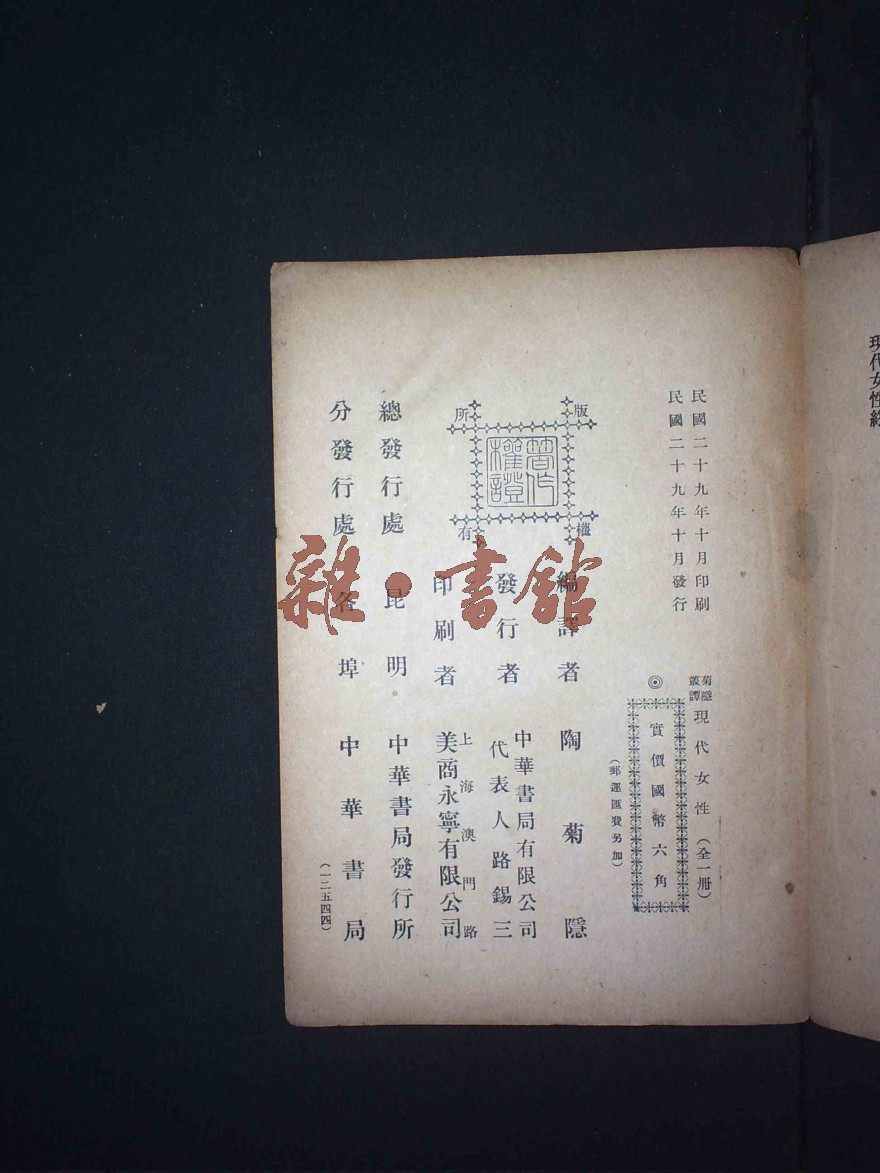 現代女性終
民國二十九年十月印刷
民國二十九年十月發行
菊隱叢譚 現代女性（全一冊）
◎ 實價國幣六角
（郵運匯費另加）
版權所有
著作權證
編譯者 陶菊隱
發行者 中華書局有限公司
代表人路錫三
印刷者 上海澳門路
美商永寧有限公司
總發行處 昆明 中華書局發行所
分發行處 各埠 中華書局
（一二五四四）
雜·書館